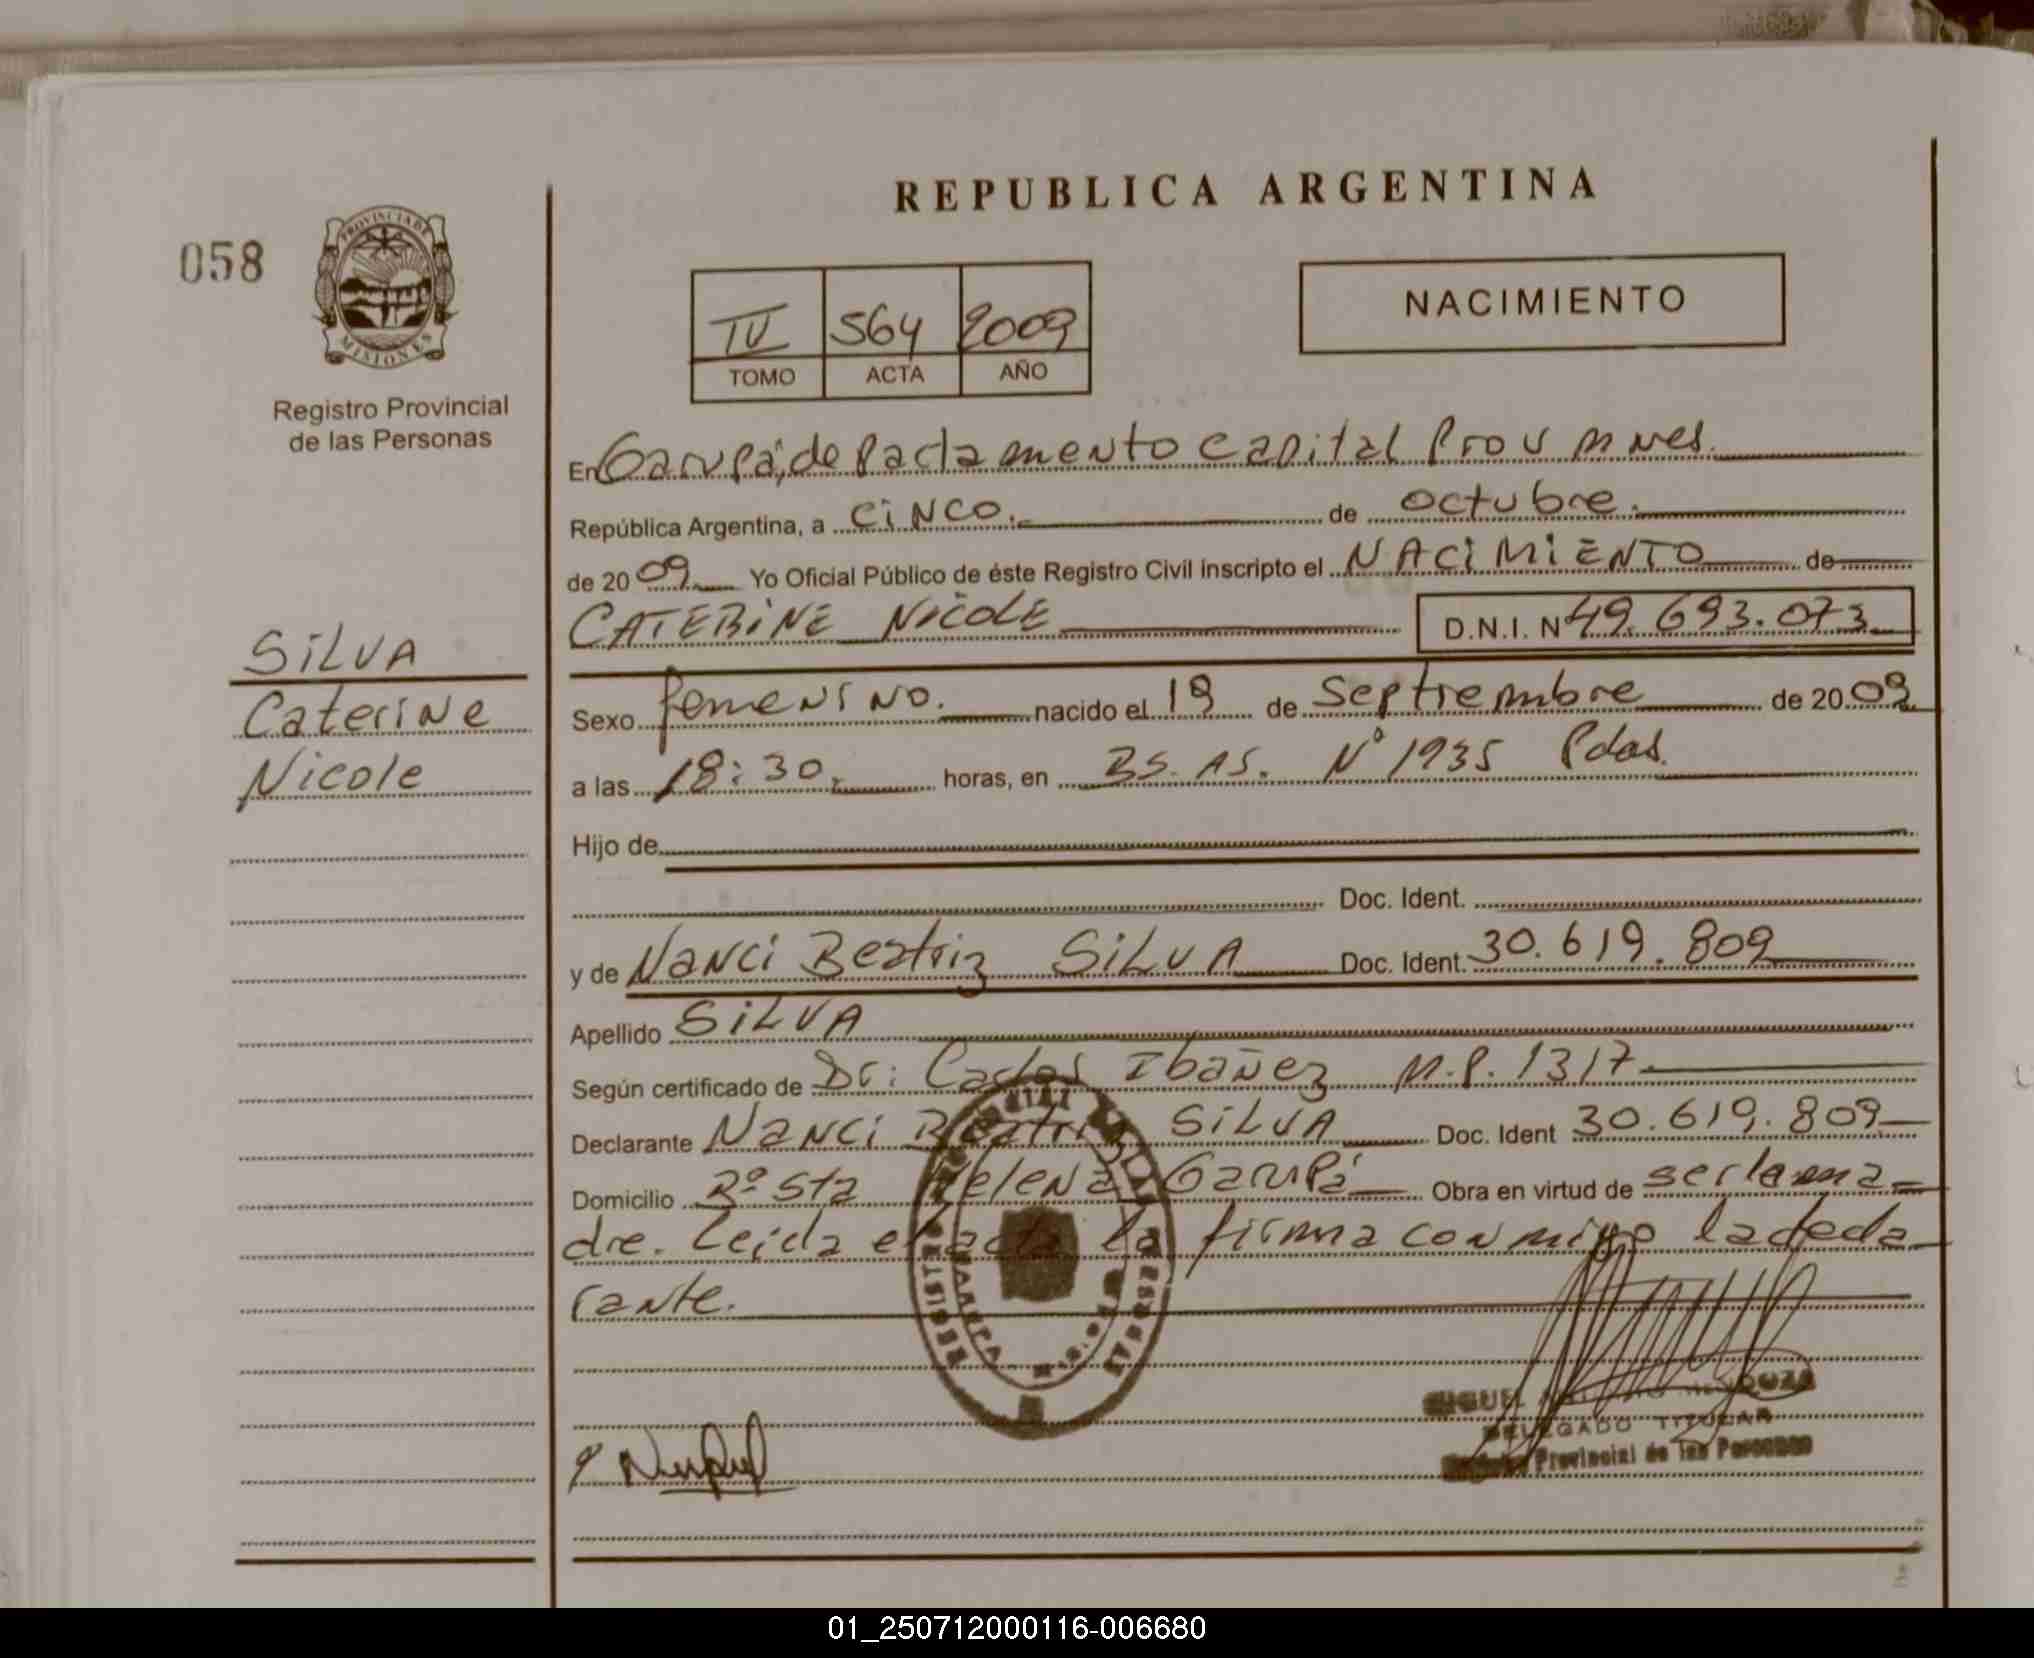 REPUBLICA ARGENTINA
058
PROVINCIA DE
MISIONES
Registro Provincial
de las Personas
IV 564 2009
TOMO ACTA AÑO
NACIMIENTO
En Garupá, departamento Capital Prov Mnes.
República Argentina, a cinco. de octubre.
de 2009 Yo Oficial Público de éste Registro Civil inscripto el NACIMIENTO de
CATERINE NICOLE D.N.I. N 49.693.073
SILVA
Caterine
Nicole
Sexo femenino. nacido el 19 de Septiembre de 2009
a las 18:30. horas, en BS. AS. Nº 1935 Pdas.
Hijo de
Doc. Ident.
y de Nanci Beatriz SILVA Doc. Ident. 30.619.809
Apellido SILVA
Según certificado de Dr: Carlos Ibañez M.P. 1317
Declarante Nanci Beatriz SILVA Doc. Ident 30.619.809
Domicilio Bº Sta Helena Garupá Obra en virtud de ser la ma-
dre. Leida el acta la firma conmigo la decla
rante.
MIGUEL MENDOZA
DELEGADO TITULAR
Registro Provincial de las Personas
01_250712000116-006680